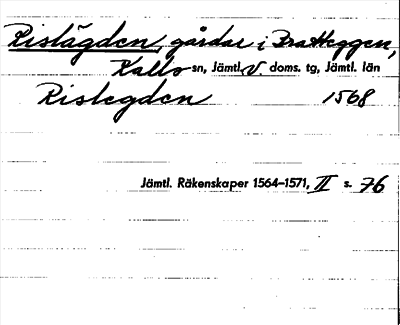 Rislägden, gårdar i Bratteggen,
Kalls sn, Jämtl. V. doms. tg, Jämtl. län
Rislegden 1568
Jämtl. Räkenskaper 1564–1571, II s. 76